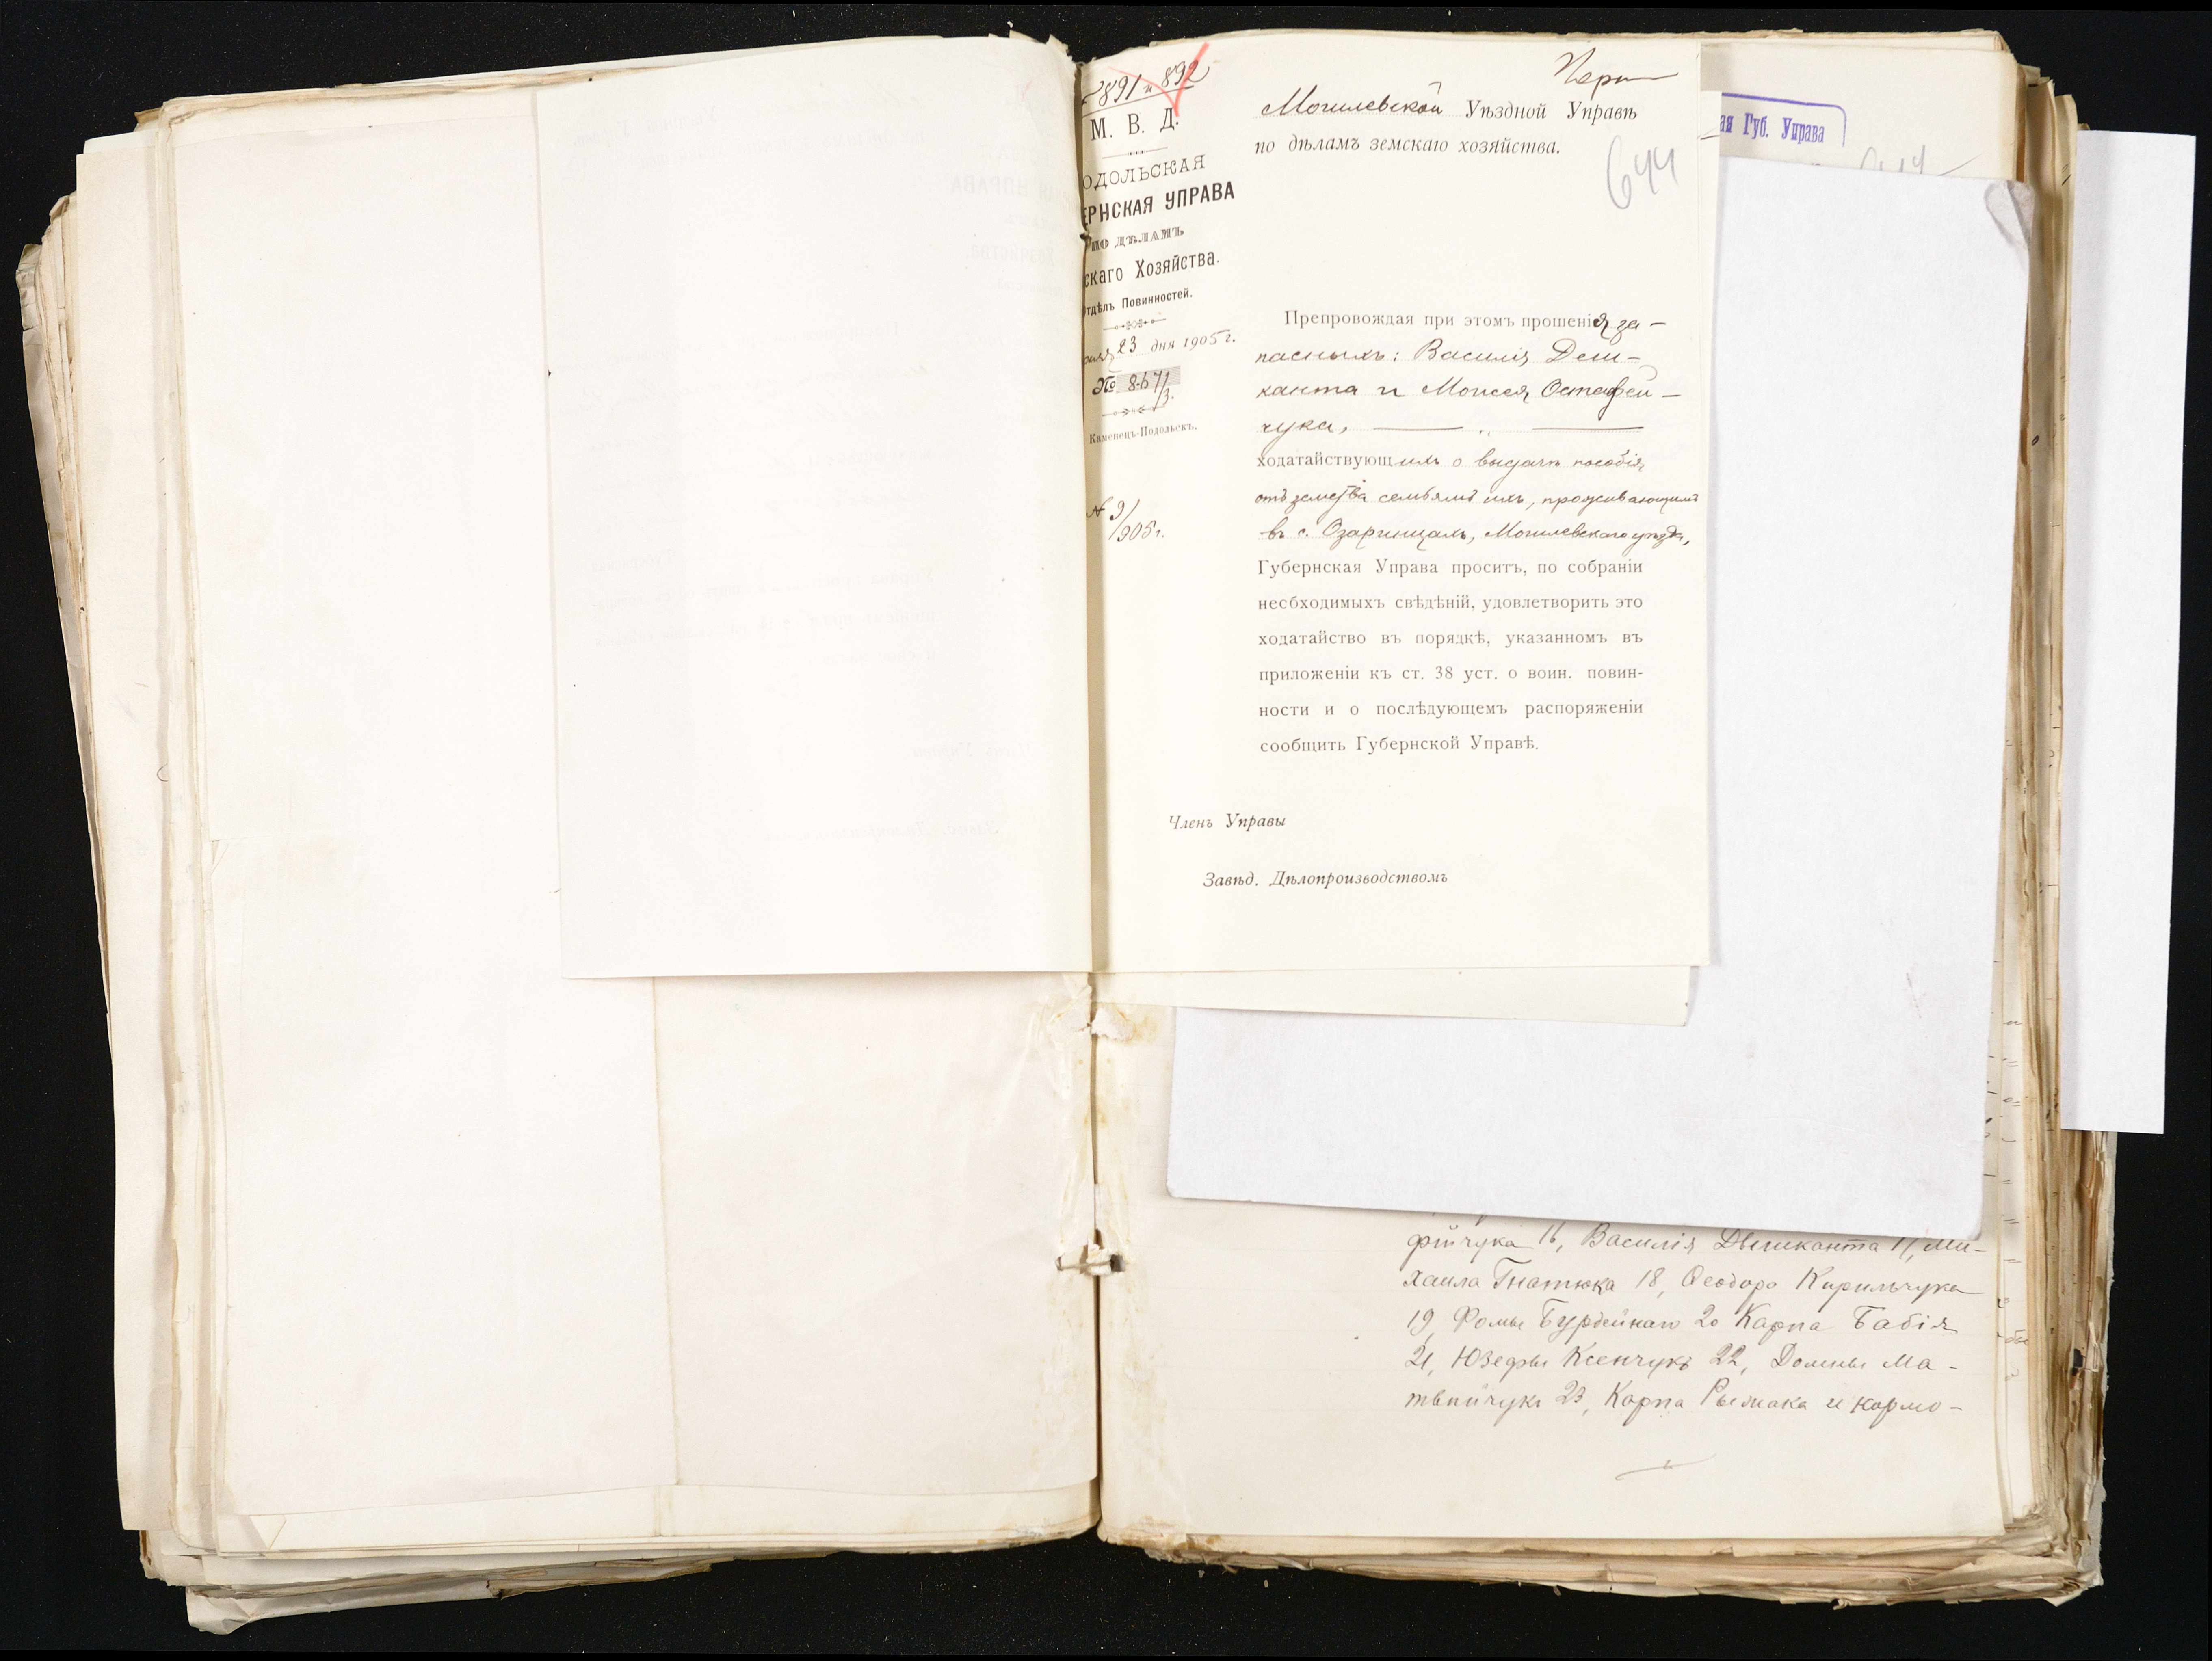 891 и 892
М. В. Д.
ОДОЛЬСКАЯ
ЕРНСКАЯ УПРАВА
ПО ДѢЛАМЪ
скаго Хозяйства.
тдѣлъ Повинностей.
23 дня 1905 г.
№ 8671/3.
Каменецъ-Подольскъ.
№ 9/905 г.
Могилевской Уѣздной Управѣ
по дѣламъ земскаго хозяйства.
644
Препровождая при этомъ прошенія за-
пасныхъ: Василія Деш-
канта и Моисея Остафей-
чука,
ходатайствующихъ о выдачѣ пособія
отъ земства семьямъ ихъ, проживающимъ
въ с. Озаринцахъ, Могилевскаго уѣзда,
Губернская Управа проситъ, по собраніи
несбходимыхъ свѣдѣній, удовлетворить это
ходатайство въ порядкѣ, указанномъ въ
приложеніи къ ст. 38 уст. о воин. повин-
ности и о послѣдующемъ распоряженіи
сообщить Губернской Управѣ.
Членъ Управы
Завѣд. Дѣлопроизводствомъ
ая Губ. Управа
фійчука 16, Василія Дѣшканта 17, Ми-
хаила Гнатюка 18, Ѳеодора Кирильчука
19, Фомы Бурдейнаго 20 Карпа Бабія
21, Юзефы Ксенчукъ 22, Домны Ма-
твѣйчукъ 23, Карпа Рыжака и кормо-